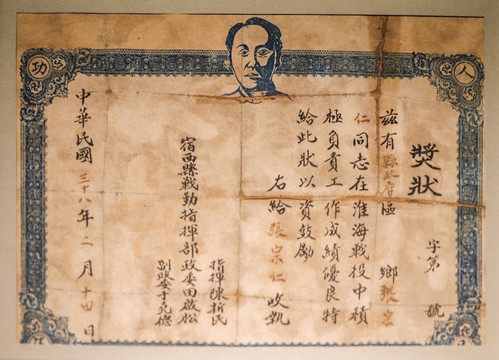 人
功
獎狀
字第 號
茲有縣政府區 鄉張宗
仁同志在淮海戰役中積
極負責工作成績優良特
給此狀以資鼓勵
右給張宗仁收執
宿西縣戰勤指揮部
指揮陳新民
政委田啟松
副政委于
中華民國三十八年二月十四日